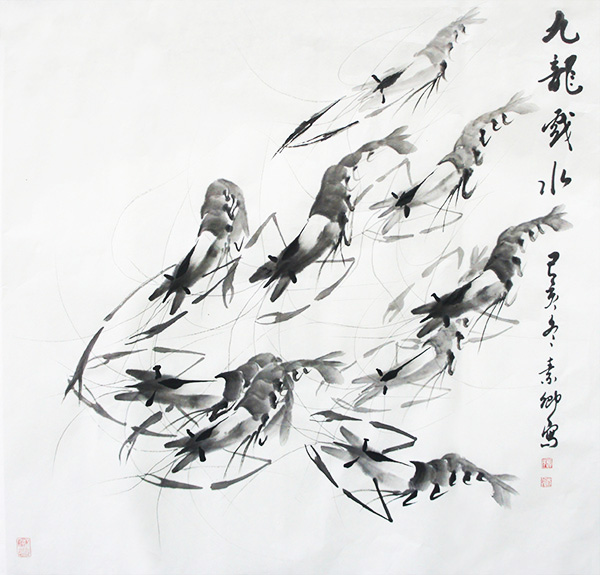 九龍戲水
己亥冬素卿寫